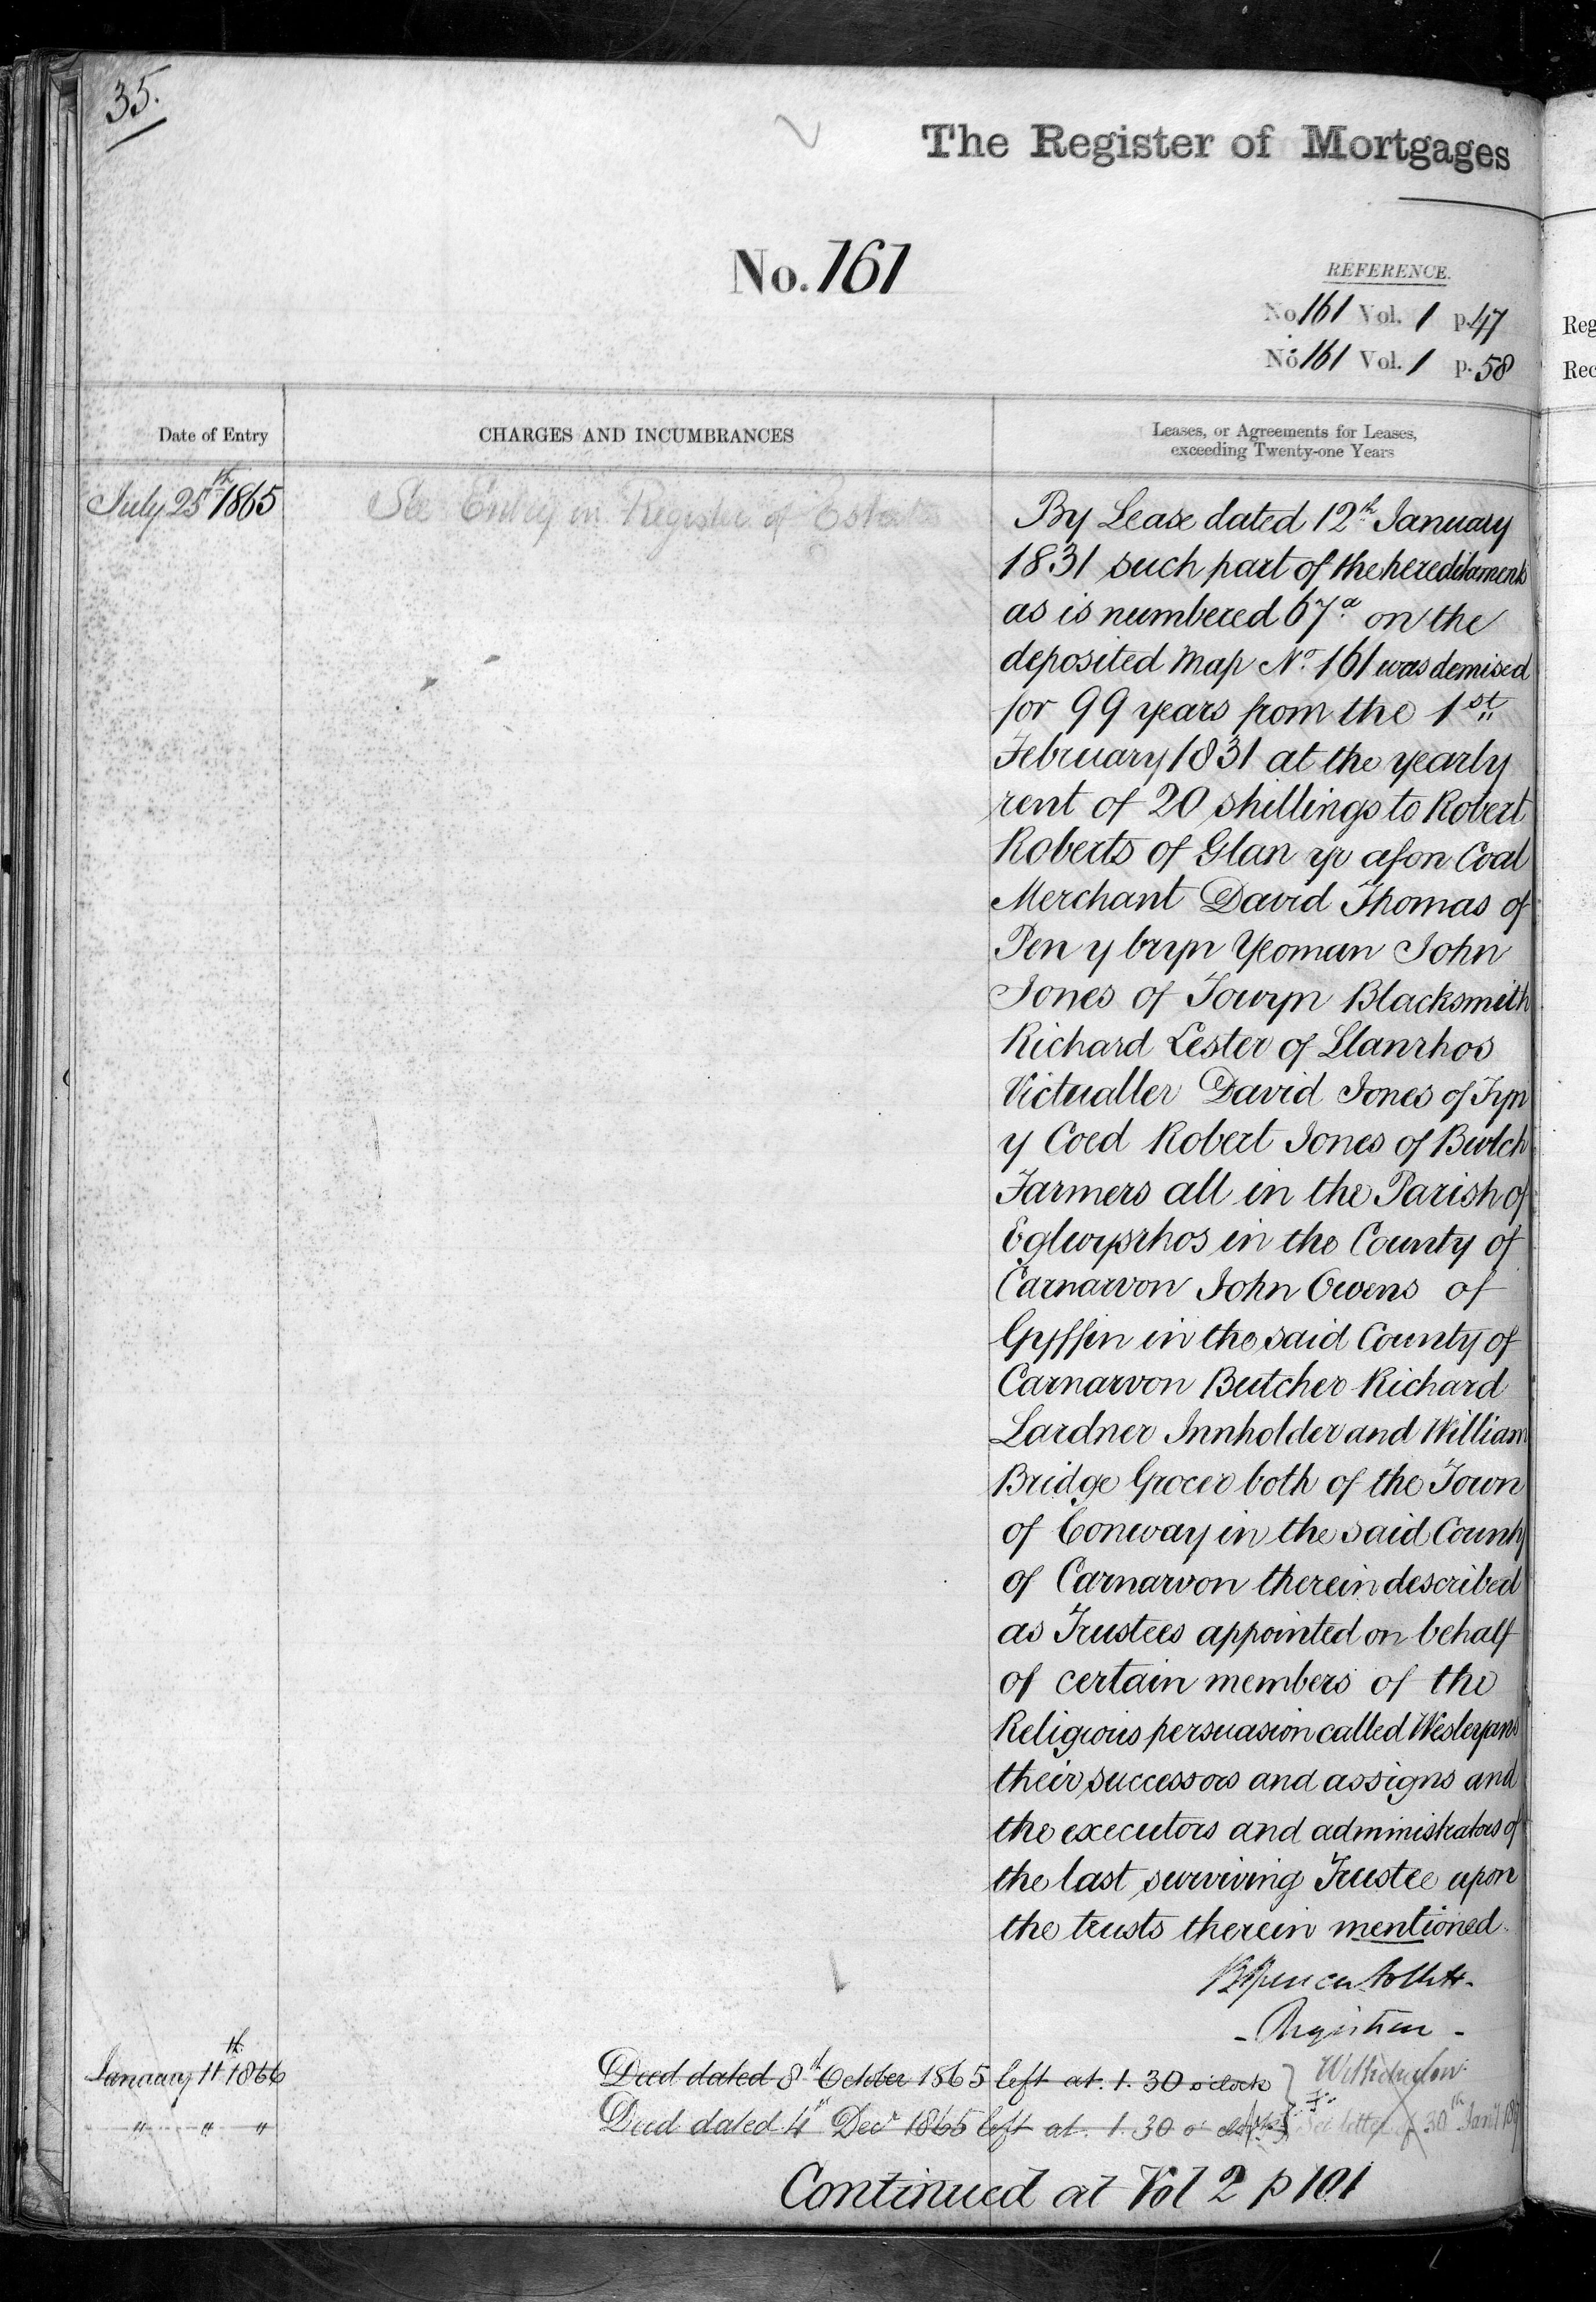 35.
The Register of Mortgages
No. 161
REFERENCE.
No 161 Vol. 1 p. 47
No 161 Vol. 1 p. 58
Reg
Rec
Date of Entry
CHARGES AND INCUMBRANCES
Leases, or Agreements for Leases,
exceeding Twenty-one Years
July 25th 1865
See Entry in Register of Estates
By Lease dated 12th January
1831 such part of the hereditaments
as is numbered 67a on the
deposited Map No. 161 was demised
for 99 years from the 1st
February 1831 at the yearly
rent of 20 shillings to Robert
Roberts of Glan yr afon Coal
Merchant David Thomas of
Pen y bryn Yeoman John
Jones of Towyn Blacksmith
Richard Lester of Llanrhos
Victualler David Jones of Tyn
y Coed Robert Jones of Bwlch
Farmers all in the Parish of
Eglwysrhos in the County of
Carnarvon John Owens of
Gyffin in the said County of
Carnarvon Butcher Richard
Lardner Innholder and William
Bridge Grocer both of the Town
of Conway in the said County
of Carnarvon therein described
as Trustees appointed on behalf
of certain members of the
Religious persuasion called Wesleyans
their successors and assigns and
the executors and administrators of
the last surviving Trustee upon
the trusts therein mentioned.
Registrar
January 11th 1866
Deed dated 8th October 1865 left at 1.30 o'clock
Withdrawn
" " "
Deed dated 4th Decr 1865 left at 1.30 o'clock
See letter of 30th Jany
Continued at Vol 2 p 101